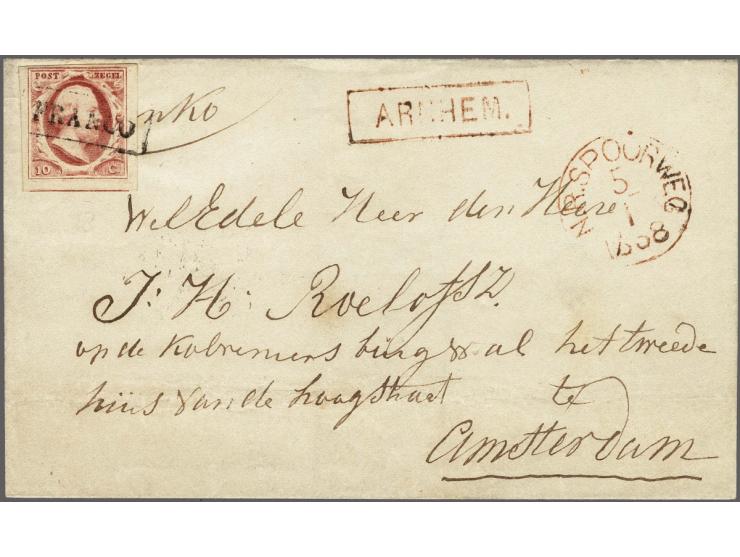 POST ZEGEL
FRANCO
10 C
ARNHEM.
N.R. SPOORWEG
5
1
1858
WelEdele Heer den Heere
J: H: Roeloffs Z.
op de al het tweede
huis van de hoogstraat te
Amsterdam